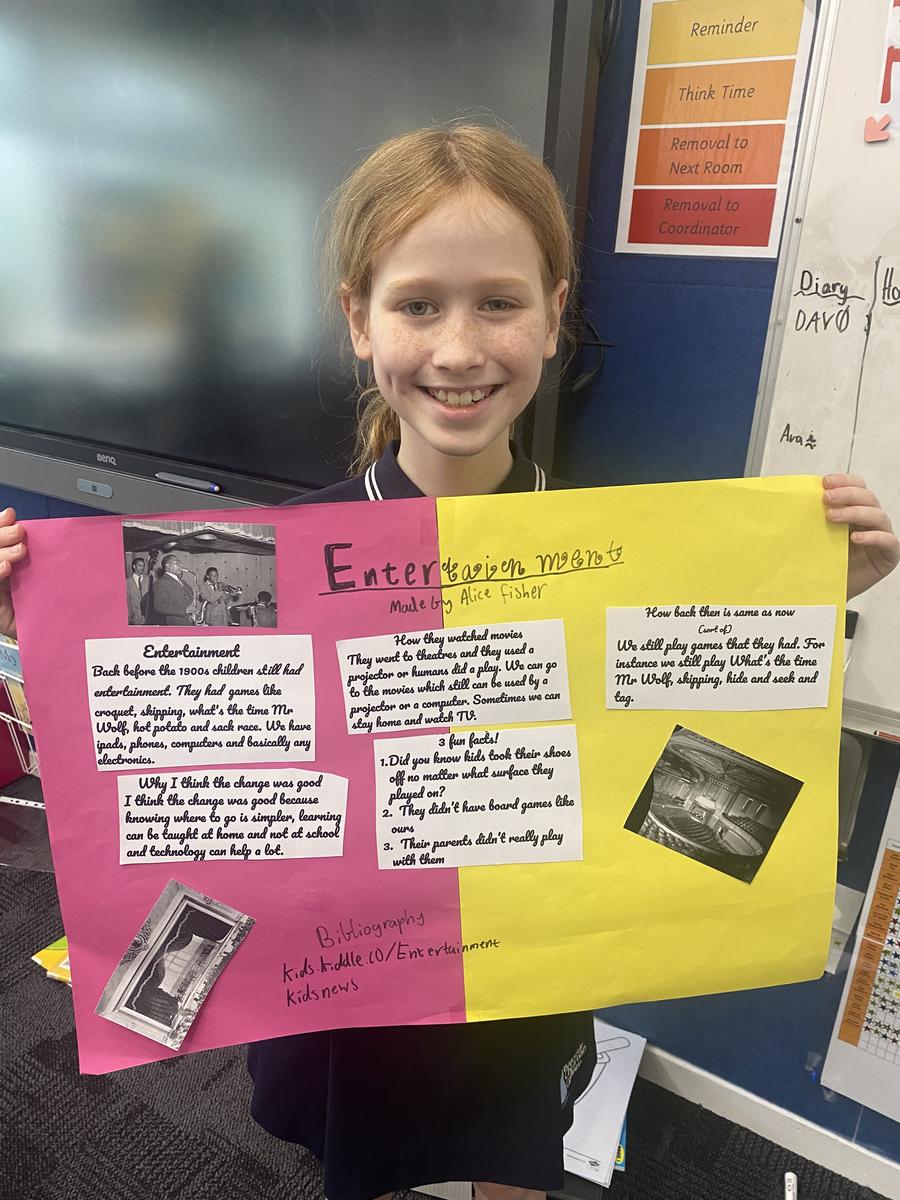 Reminder
Think Time
Removal to
Next Room
Removal to
Coordinator
Diary
DAVO
Ho
Ava
BenQ
Entertainment
Made by Alice Fisher
Entertainment
Back before the 1900s children still had
entertainment. They had games like
croquet, skipping, what's the time Mr
Wolf, hot potato and sack race. We have
ipads, phones, computers and basically any
electronics.
Why I think the change was good
I think the change was good because
knowing where to go is simpler, learning
can be taught at home and not at school
and technology can help a lot.
How they watched movies
They went to theatres and they used a
projector or humans did a play. We can go
to the movies which still can be used by a
projector or a computer. Sometimes we can
stay home and watch TV.
3 fun facts!
1. Did you know kids took their shoes
off no matter what surface they
played on?
2. They didn't have board games like
ours
3. Their parents didn't really play
with them
How back then is same as now
(sort of)
We still play games that they had. For
instance we still play What's the time
Mr Wolf, skipping, hide and seek and
tag.
Bibliography
kids.kiddle.co/Entertainment
kidsnews